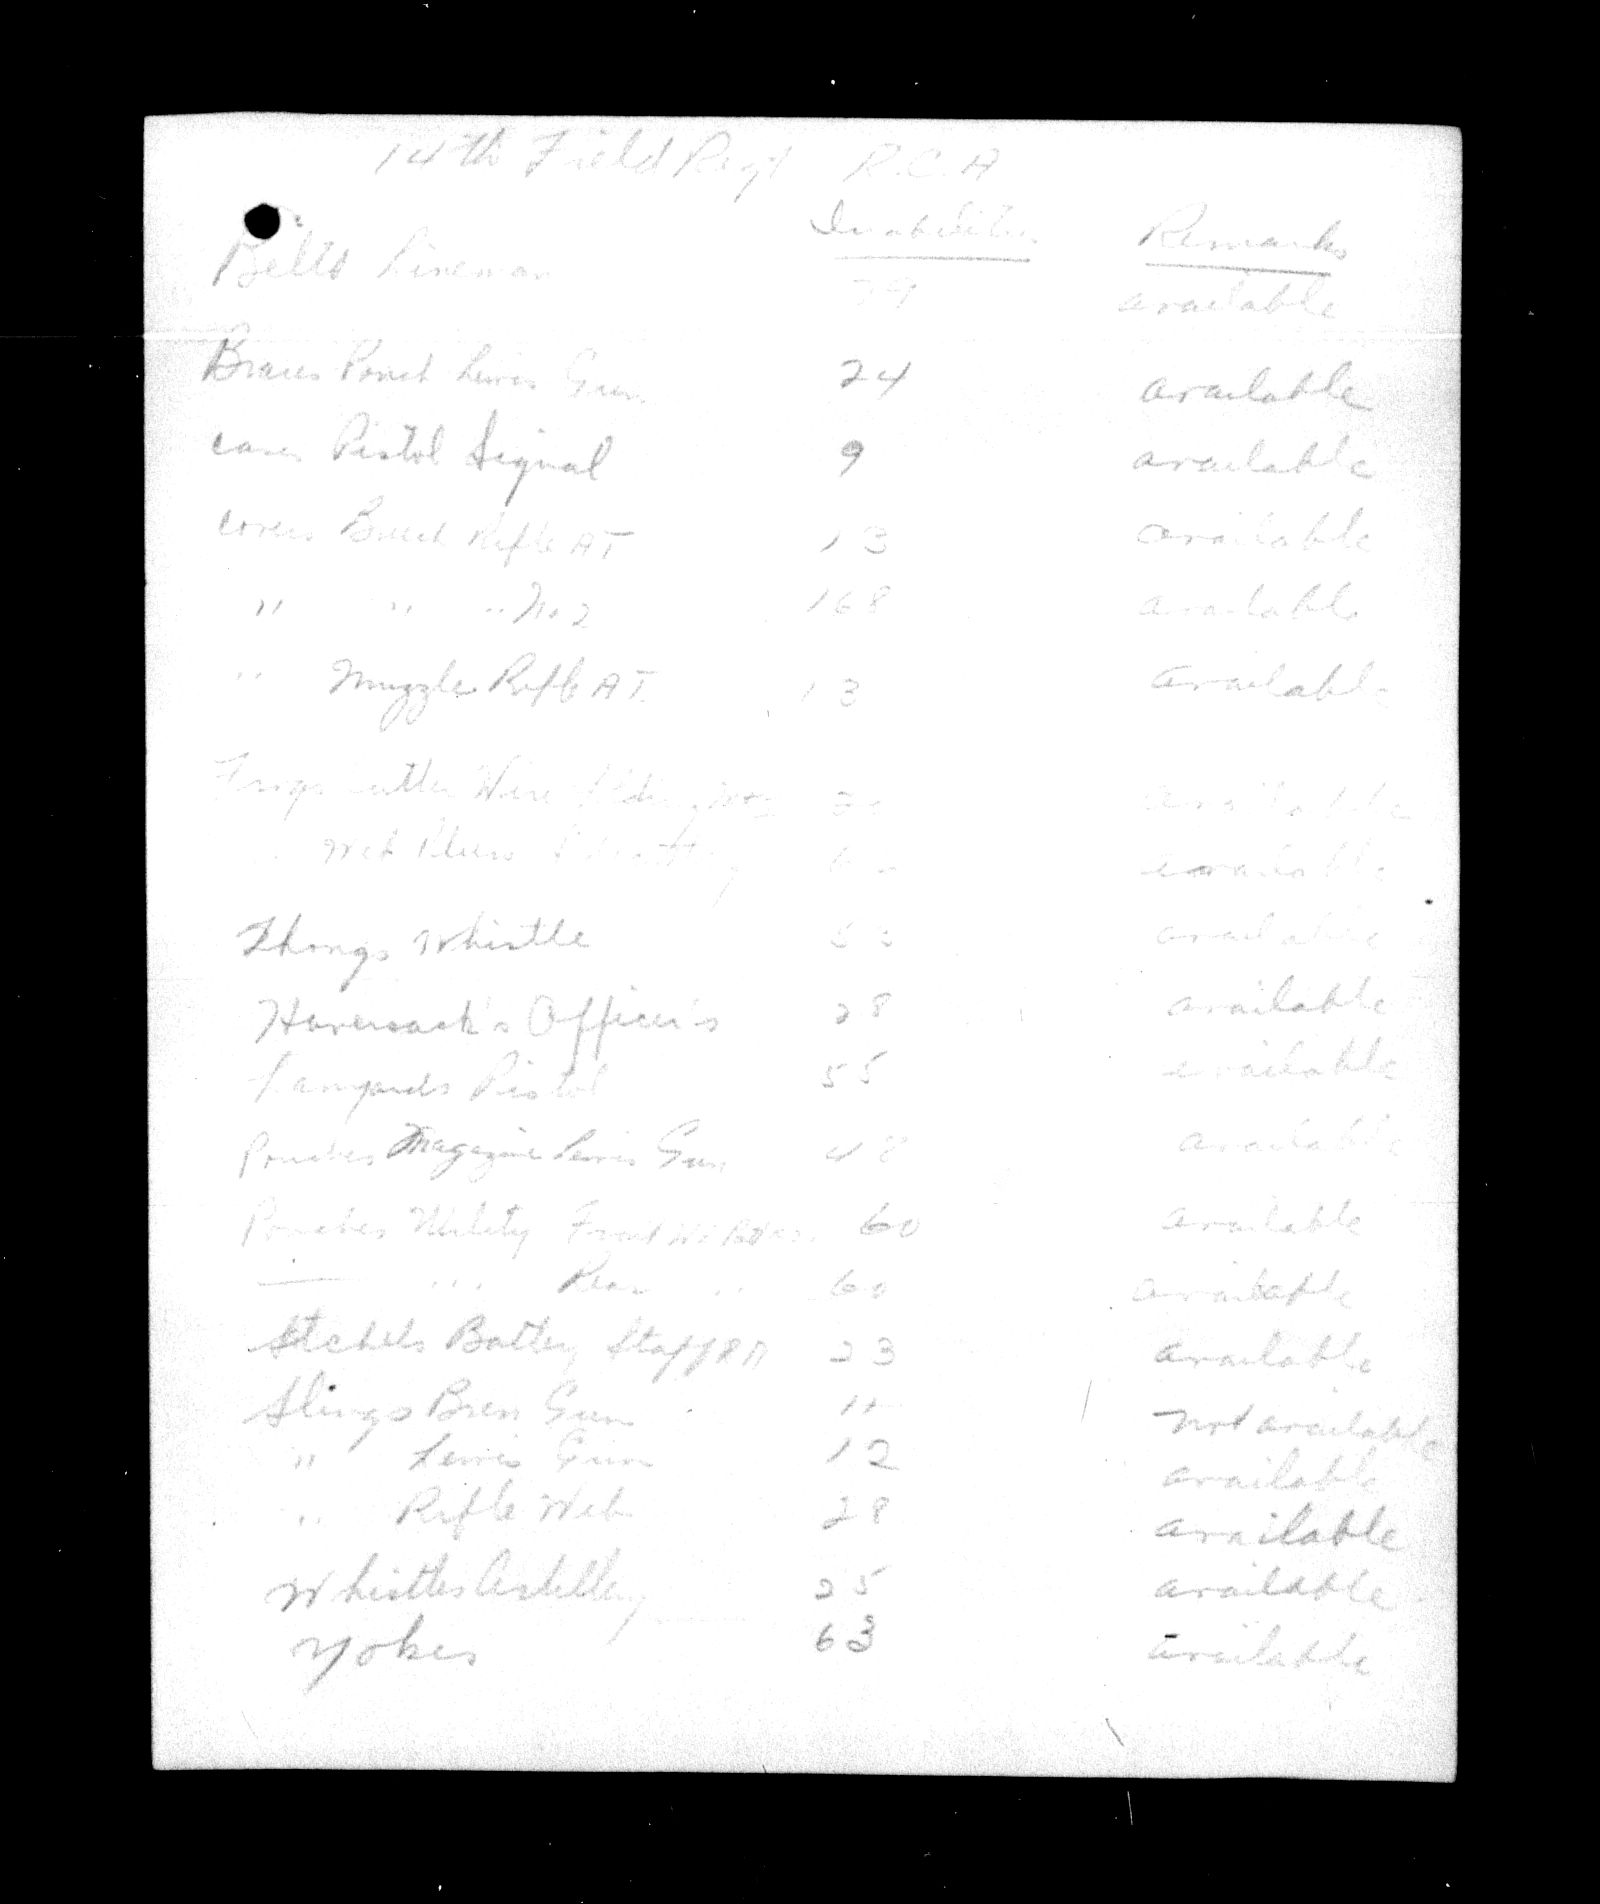 14th Field Regt R.C.A
Inabilities Remarks
Belts Lineman 29 available
Braces Pouch Lewis Gun 24 available
cases Pistol Signal 9 available
covers Breech Rifle AT 13 available
" " " No 2 168 available
" Muzzle Rifle AT. 13 available
Frogs cutter Wire available
Web Pliers available
Thongs Whistle available
Haversack's Officer's 28 available
Lanyards Pistol 55 available
Pouches Magazine Lewis Gun 48 available
Pouches Utility Front 60 available
" Rear " 60 available
Stchels Battery Staff RA 23 available
Slings Bren Gun 11 not available
" Lewis Gun 12 available
" Rifle Web 28 available
Whistles Artillery 25 available
Yokes 63 available